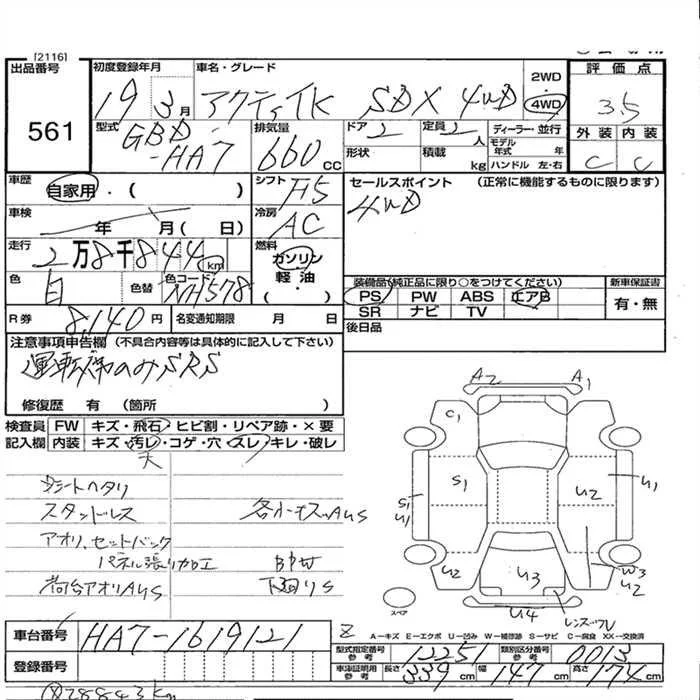 [2116]
出品番号 初度登録年月 車名・グレード 2WD 評価点
561 19 3月 アクティTK SDX 4WD 4WD 3.5
型式 GBD-HA7 排気量 660cc ドア 2 定員 2人 ディーラー・並行 外装 内装
形状 積載 kg モデル年式 年 ハンドル 左・右 C C
車歴 自家用・( ) シフト F5 セールスポイント (正常に機能するものに限ります)
車検 年 月( 日) 冷房 AC 4WD
走行 2万8千844km 燃料 ガソリン 軽油 ・( )
色 白 色替 色コード NH578 装備品(純正品に限り○をつけてください) 新車保証書
PS PW ABS エアB 有・無
R券 8,140円 名変通知期限 月 日 SR ナビ TV
後日品
注意事項申告欄 (不具合内容等は具体的に記入して下さい)
運転席のみSRS
修復歴 有 (箇所 )
検査員 FW キズ・飛石・ヒビ割・リペア跡・×要
記入欄 内装 キズ・汚レ・コゲ・穴・スレ・キレ・破レ
天
シートヘタリ
スタンドレス 各所 AUS
アオリ、セットバック
パネル張り加工
荷台アオリAUS 下廻りS
A2 A1
C1
S1 U2 U1
S1
U1
U2 U3 W3
U2
U4 レンズワレ
スペア
A－キズ E－エクボ U－凹み W－補修跡 S－サビ C－腐食 XX－交換済
車台番号 HA7-1619121
登録番号
型式指定番号 参考 12251 類別区分番号 参考 0013
車検証明用 参考 長さ 339cm 幅 147cm 高さ 174cm
28843km